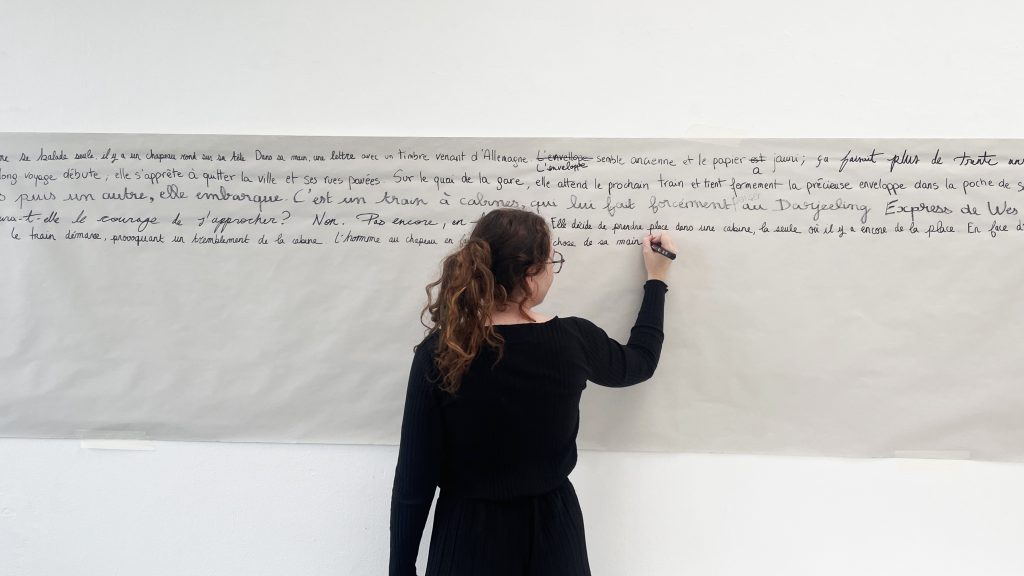 se balade seule, il y a un chapeau rond sur sa tête. Dans sa main, une lettre avec un timbre venant d'Allemagne. L'envellope L'enveloppe semble ancienne et le papier est a jauni; ça faisait plus de trente
long voyage débute, elle s'apprête à quitter la ville et ses rues pavées. Sur le quai de la gare, elle attend le prochain train et tient fermement la précieuse enveloppe dans la poche de
puis un autre, elle embarque. C'est un train à cabines, qui lui fait forcément au Darjeeling Express de Wes
-t-elle le courage de s'approcher? Non. Pas encore, en Elle décide de prendre place dans une cabine, la seule où il y a encore de la place. En face
le train démarre, provoquant un tremblement de la cabine. L'homme au chapeau en chose de sa main